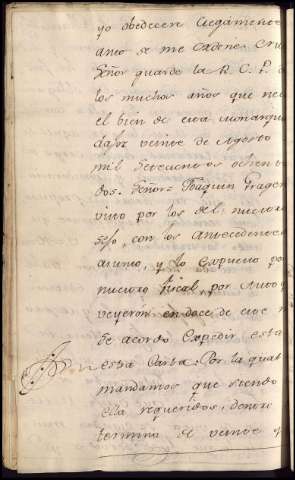 yo obedecere ciegamente
Señor guarde la R. C. P. d
los muchos años que nec
el bien de esta Monarquia
dajoz veinte de Agosto
mil setecientos ochen
dos. Señor = Joaquin Frage
visto por los del nuestro
sejo, con los antecedente
asunto, y lo expuesto por
nuestro fiscal, por
veyeron en doce de este m
se acordo Expedir esta
esta Carta: Por la qual
mandamos que siendo
ella requeridos, dentro
termino de veinte